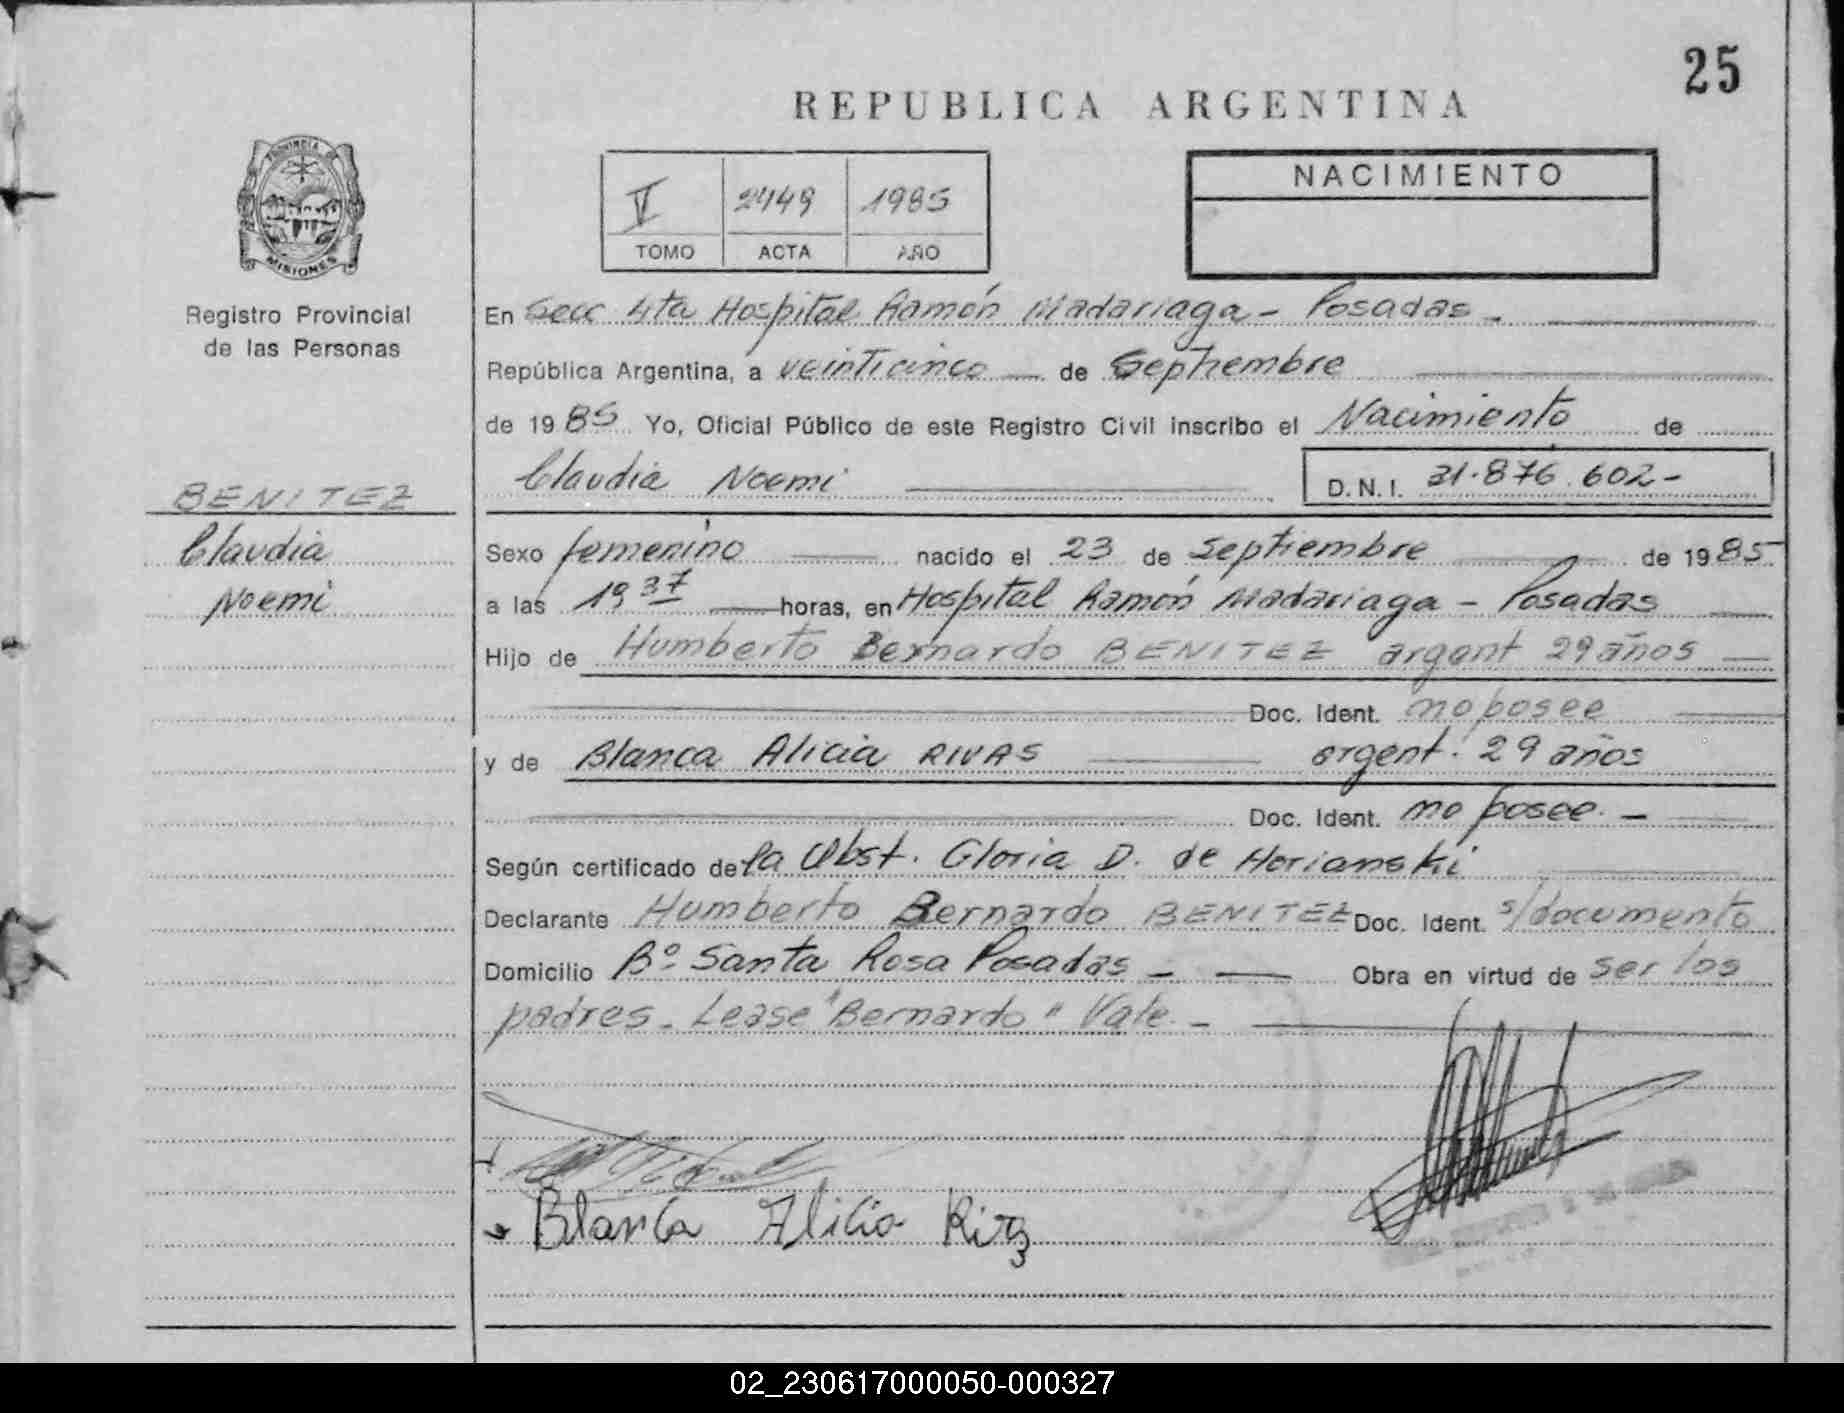 25
REPUBLICA ARGENTINA
PROVINCIA DE
MISIONES
Registro Provincial
de las Personas
V 2449 1985
TOMO ACTA AÑO
NACIMIENTO
En Secc 4ta Hospital Ramón Madariaga - Posadas -
República Argentina, a veinticinco de Septiembre
de 1985 Yo, Oficial Público de este Registro Civil inscribo el Nacimiento de
Claudia Noemi D.N.I. 31.876.602-
BENITEZ
Claudia
Noemi
Sexo femenino nacido el 23 de Septiembre de 1985
a las 19 37 horas, en Hospital Ramón Madariaga - Posadas
Hijo de Humberto Bernardo BENITEZ argent 29 años
Doc. Ident. no posee
y de Blanca Alicia RIVAS argent. 29 años
Doc. Ident. no posee. -
Según certificado de la Obst. Gloria D. de Horianski
Declarante Humberto Bernardo BENITEZ Doc. Ident. s/documento
Domicilio Bº Santa Rosa Posadas - Obra en virtud de ser los
padres. Lease "Bernardo" Vale. -
Blanca Alicia
02_230617000050-000327